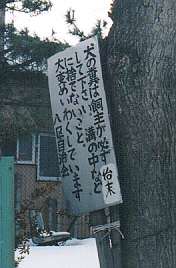 犬の糞は飼主が必ず始末
して下さい。溝の中など
に捨てないこと。
大変めいわくしています
八区自治会